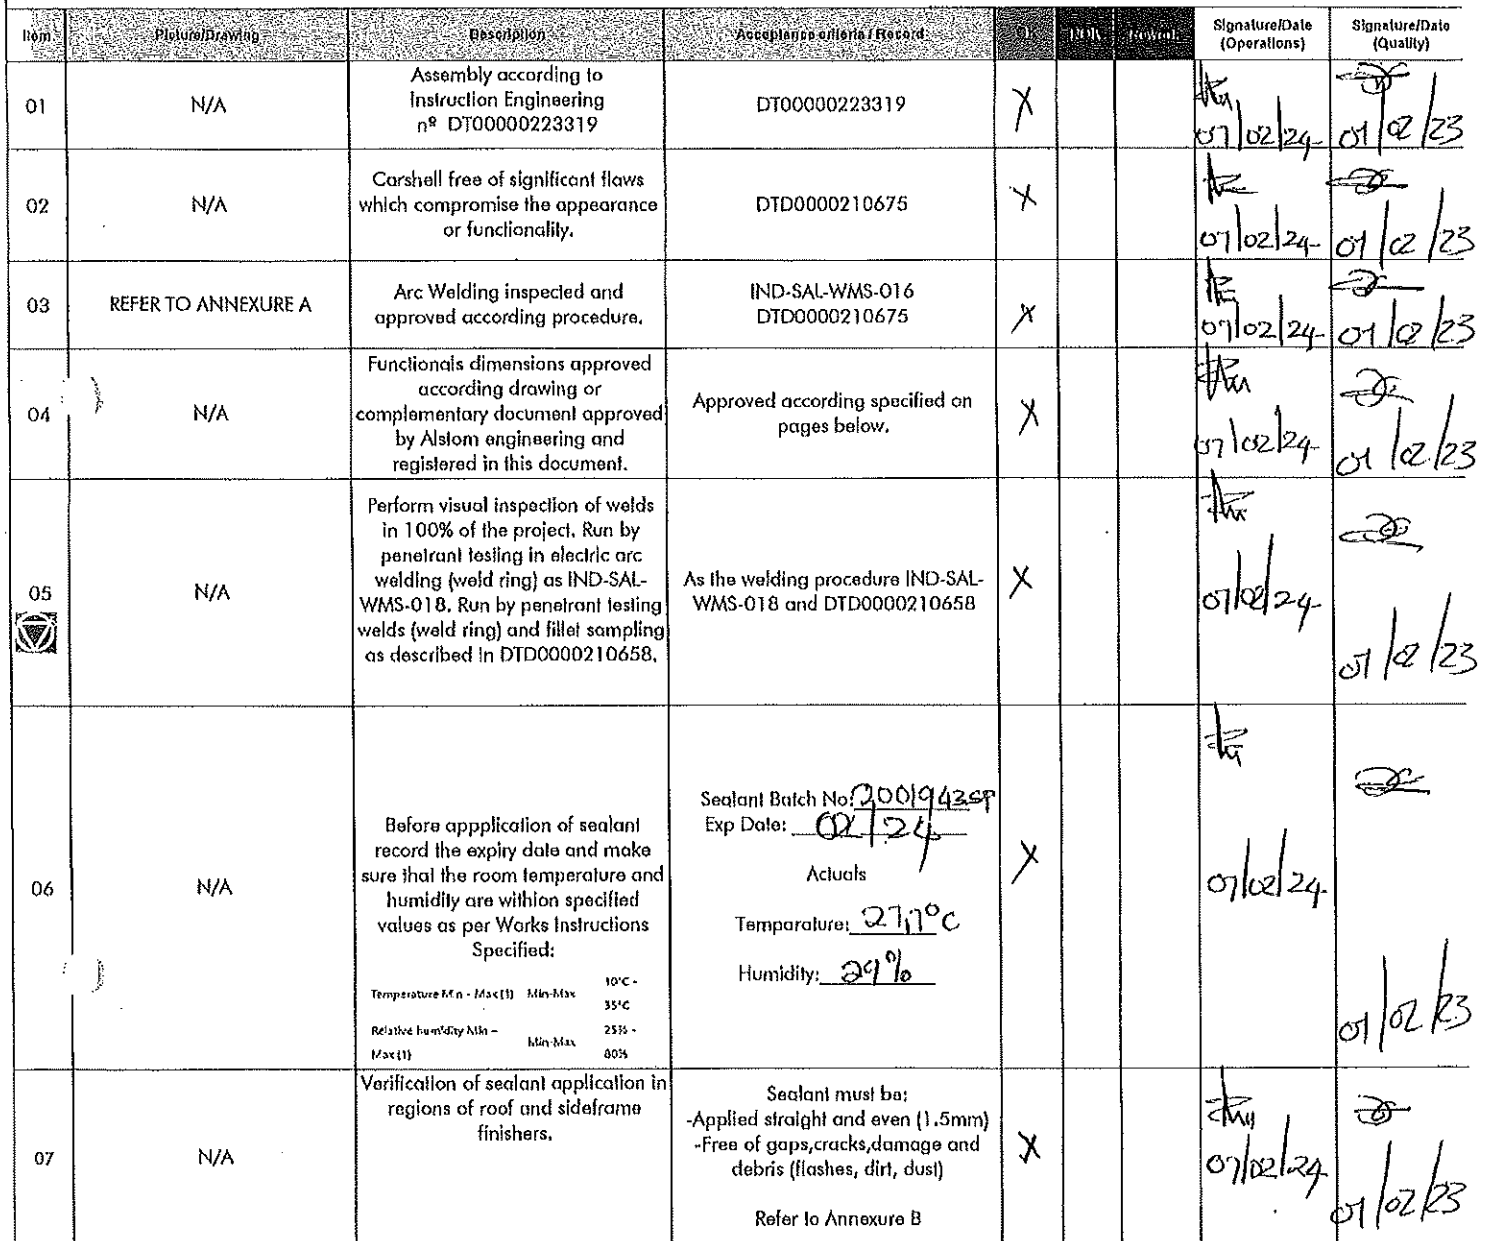 Item Picture/Drawing Description Acceptance criteria / Record Signature/Date (Operations) Signature/Date (Quality)
01 N/A
Assembly according to
Instruction Engineering
nº DT00000223319
DT00000223319
X
07/02/24
07/02/23
02 N/A
Carshell free of significant flaws
which compromise the appearance
or functionality.
DTD0000210675
X
07/02/24
07/02/23
03 REFER TO ANNEXURE A
Arc Welding inspected and
approved according procedure.
IND-SAL-WMS-016
DTD0000210675
X
07/02/24
07/02/23
04 N/A
Functionals dimensions approved
according drawing or
complementary document approved
by Alstom engineering and
registered in this document.
Approved according specified on
pages below.
X
07/02/24
07/02/23
05 N/A
Perform visual inspection of welds
in 100% of the project. Run by
penetrant testing in electric arc
welding (weld ring) as IND-SAL-
WMS-018. Run by penetrant testing
welds (weld ring) and fillet sampling
as described in DTD0000210658.
As the welding procedure IND-SAL-
WMS-018 and DTD0000210658
X
07/02/24
07/02/23
06 N/A
Before appplication of sealant
record the expiry date and make
sure that the room temperature and
humidity are withion specified
values as per Works Instructions
Specified:
Temperature Min - Max(1) Min-Max 10°C -
35°C
Relative humidity Min –
Max(1) Min-Max 25% -
80%
Sealant Batch No: 2001943
Exp Date: 02/24
Actuals
Temparature: 27,7°C
Humidity: 29%
X
07/02/24
07/02/23
07 N/A
Verification of sealant application in
regions of roof and sideframe
finishers.
Sealant must be:
-Applied straight and even (1.5mm)
-Free of gaps,cracks,damage and
debris (flashes, dirt, dust)
Refer to Annexure B
X
07/02/24
07/02/23